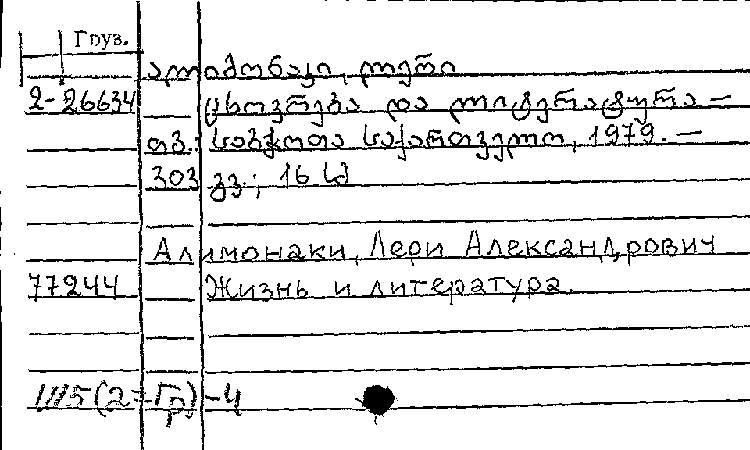 Груз.
ალიმონაკი, ლერი
2-26634 ცხოვრება და ლიტერატურა –
თბ.: საბჭოთა საქართველო, 1979. –
303 გვ.; 16 სმ
Алимонаки, Лери Александрович
77244 Жизнь и литература.
Ш5(2=Гр)-4